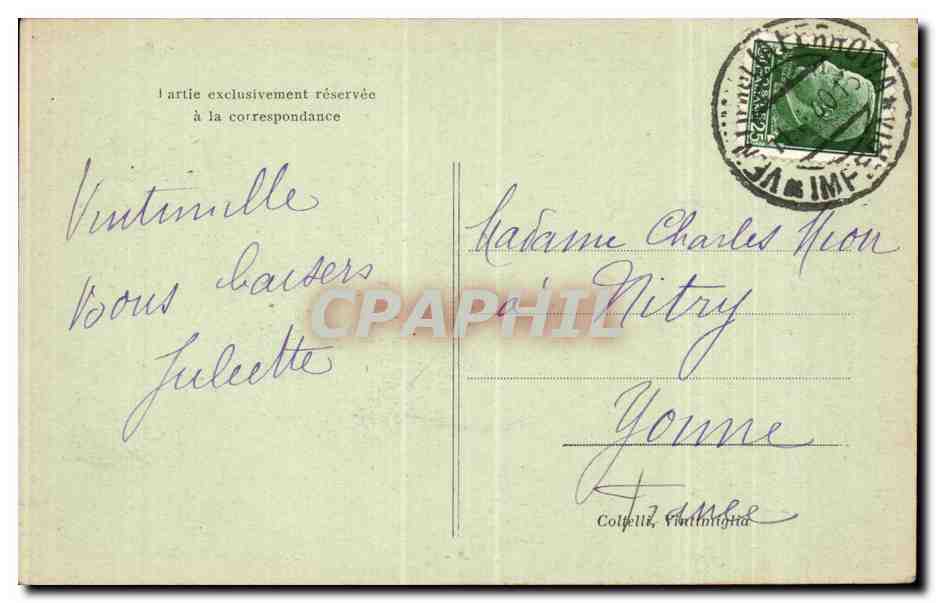 artie exclusivement réservée
à la correspondance
Vintimille
Bons baisers
Juliette
Madame Charles Mion
à Nitry
Yonne
France
Coltelli, Vintimiglia
CPAPHIL
25
IMP